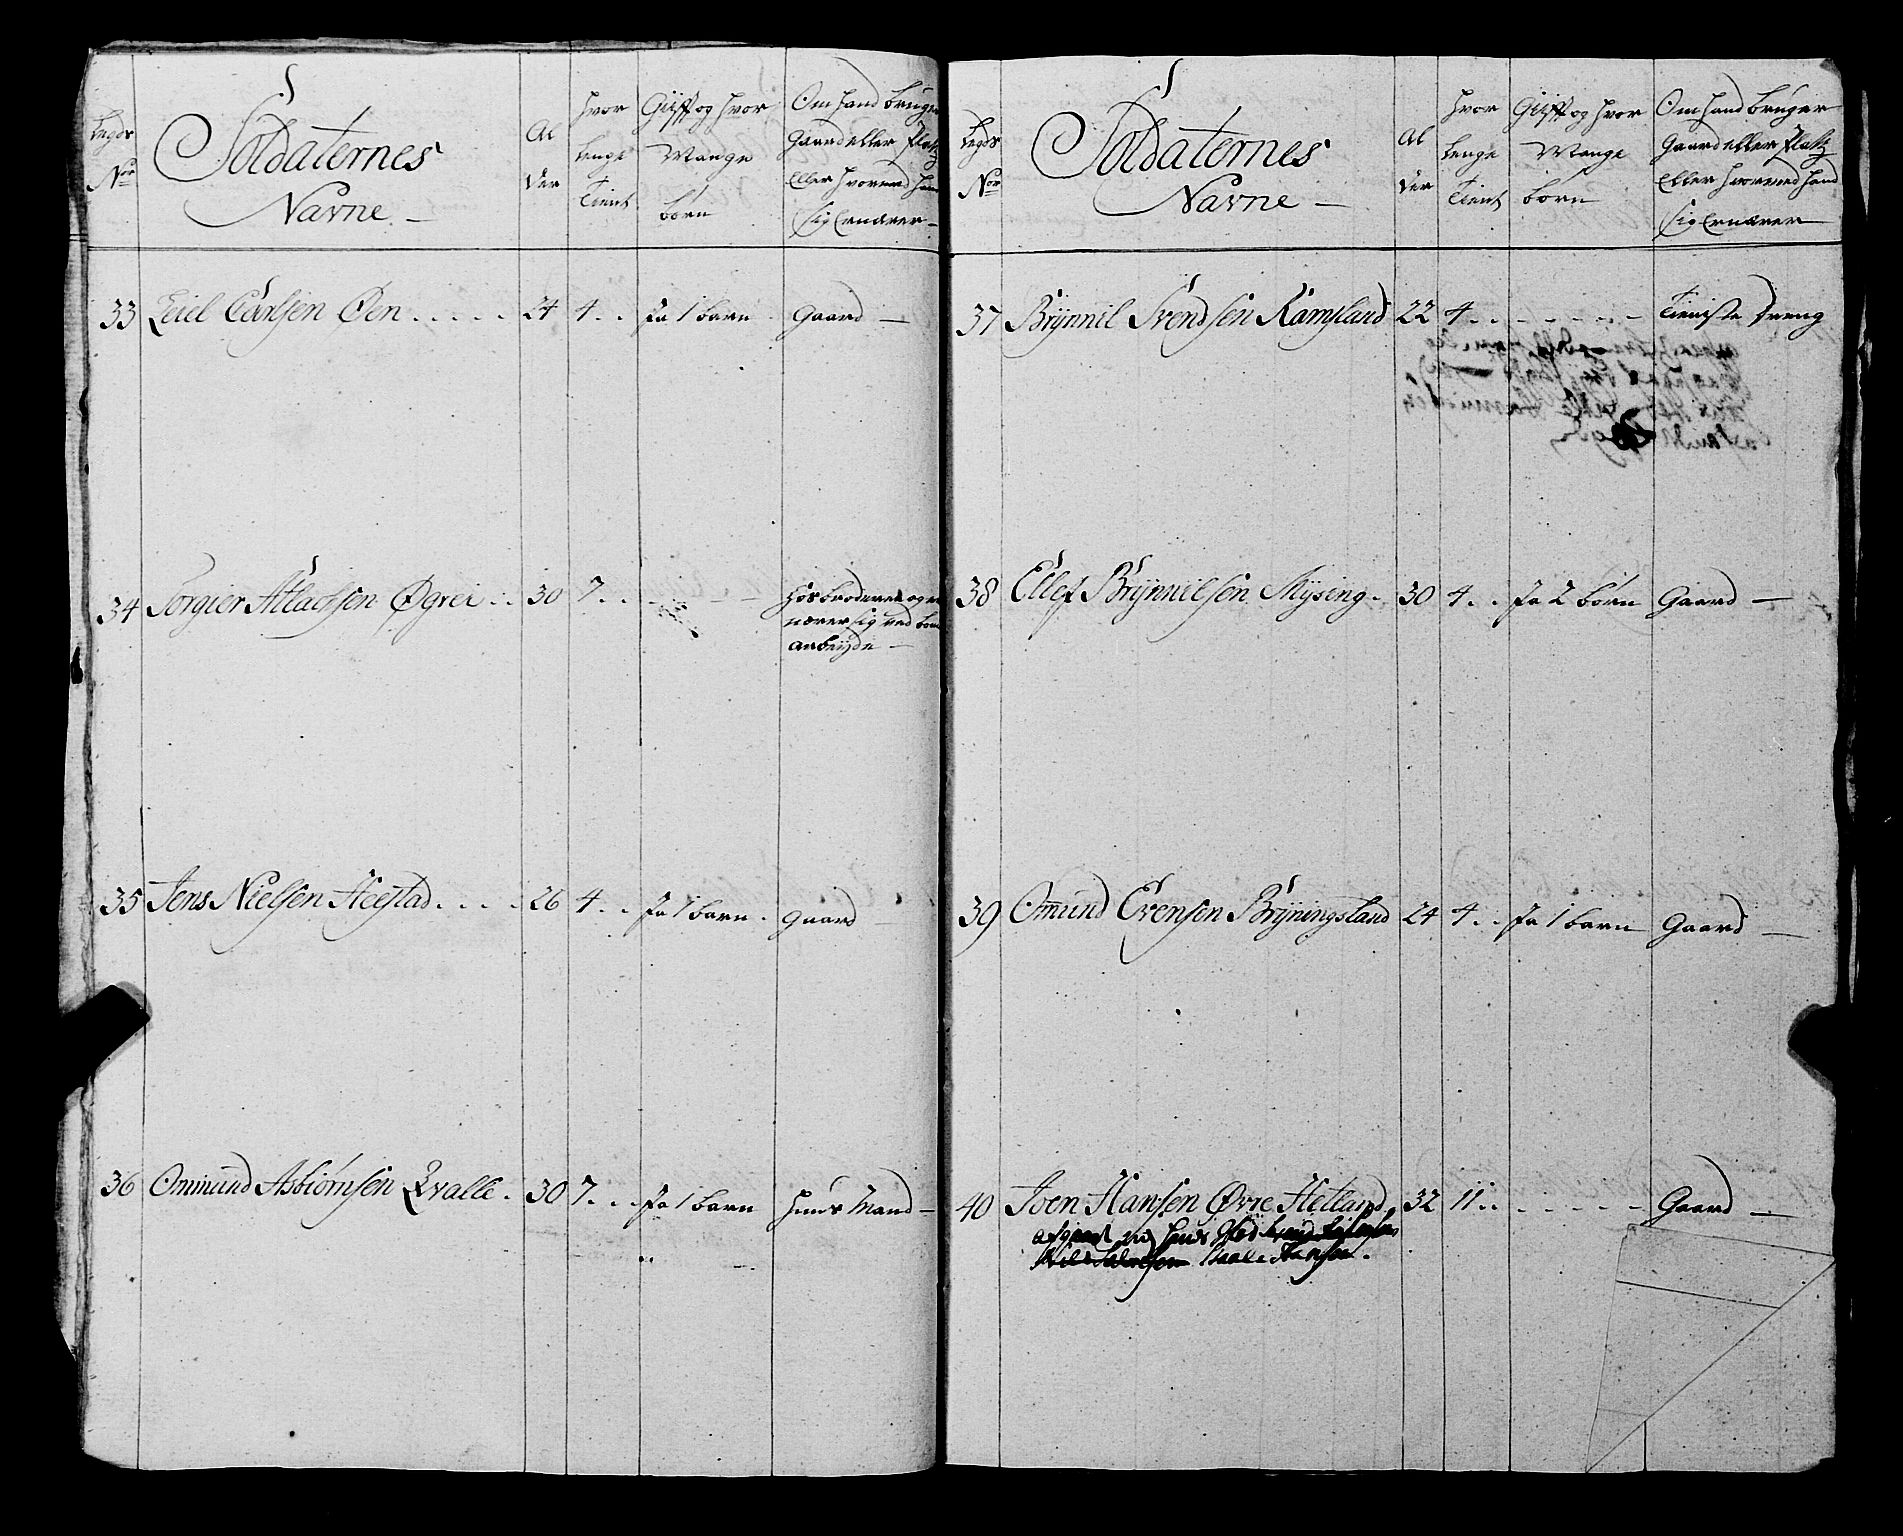 Legds
No
Soldaternes
Navne
Al
der
hvor
lenge
Tient
Gifft og hvor
Mange
børn
Om hand bruger
Gaard eller Platz
Eller hvorved hand
sig Ernærer
33 Leiel Carlsen Øen 24 4 Ja 1 barn Gaard
34 Torgier Atlachsen Øgrei 30 7 Hos broderen og er
nærer sig ved bonde
arbeÿde
35 Jens Nielsen Heestad 26 4 Ja 1 barn gaard
36 Ommund Asbiørnsen Qvalle 30 7 Ja 1 barn Huus Mand
Legds
No
Soldaternes
Navne
Al
der
hvor
lenge
Tient
Gifft og hvor
Mange
børn
Om hand bruger
Gaard eller Platz
Eller hvorved hand
sig Ernærer
37 Brÿnnil Svendsen Ramsland 22 4 Tieniste Dreng
38 Ellef Brÿnnilsen Mÿsing 30 4 Ja 2 børn Gaard
39 Omund Evensen Brÿningsland 24 4 Ja 1 barn Gaard
40 Joen Hansen Øvre Hetland 32 11 Gaard
afgaaet og hans Sted
Hansen